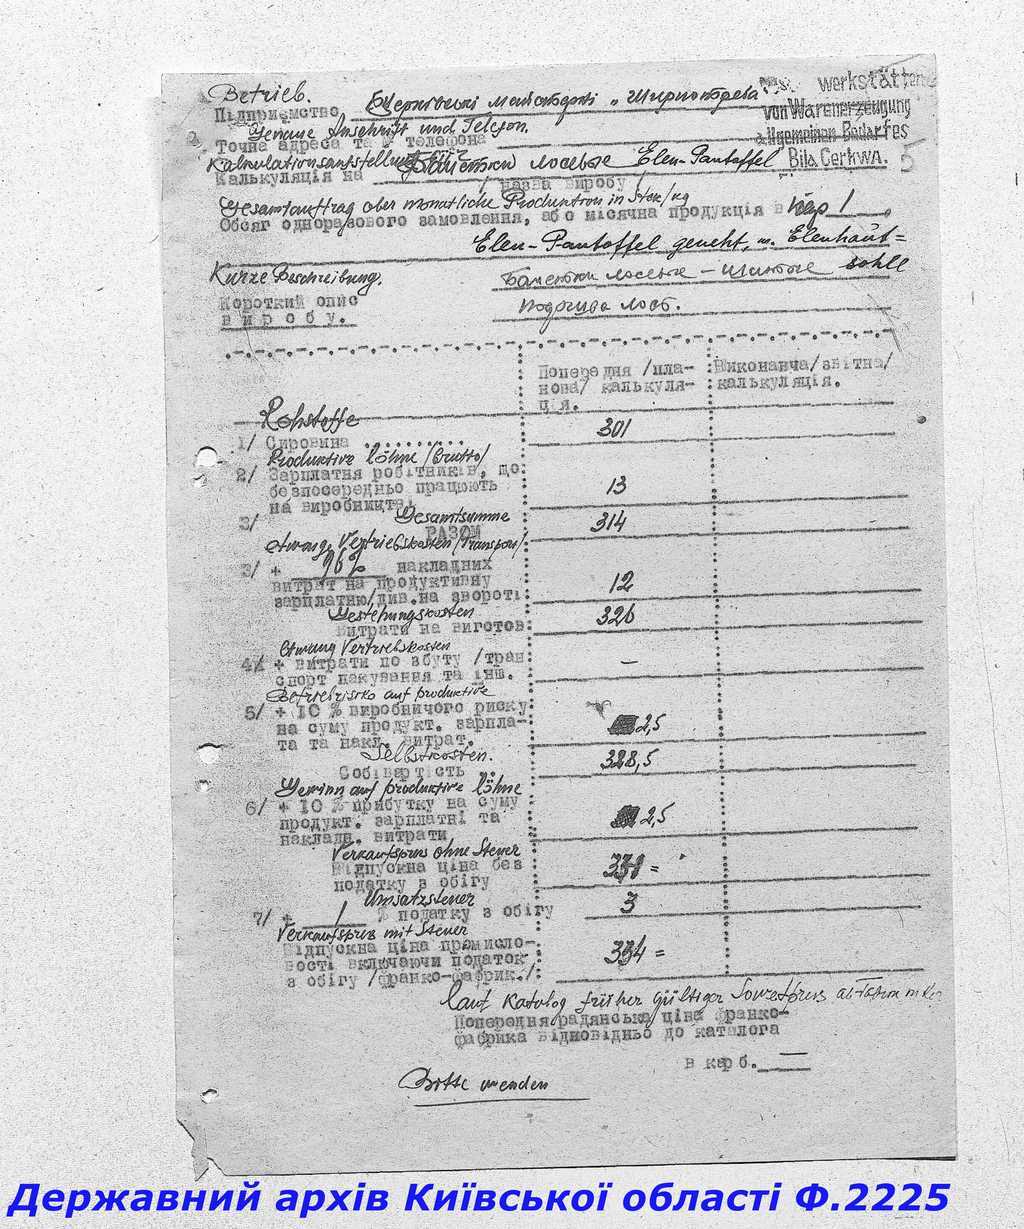 Betrieb.
Підприємство Б.Церківські майстерні „Ширпотреба"
werkstätten
von Warenerzeugung
allgemeinen Bedarfes
Bila Cerkwa.
Genaue Anschrift und Telefon.
Точна адреса та № телефона
Kalkulationsaufstellung für
Калькуляція на Балетки лосьові Elen-Pantoffel
/ назва виробу /
Gesamtauftrag oder monatliche Produktion in Stck/kg
Обсяг одноразового замовлення, або місячна продукція в пар 1
Elen-Pantoffel genäht, m. Elenhaut=
sohle
Kurze Beschreibung.
Балетки лосьові – шитые
Короткий опис
виробу.
подошва лост.
Попередня /пла-
нова/ калькуля-
ція.
Виконавча/звітна/
калькуляція.
Rohstoffe
1/ Сировина .......... 301
Produktive Löhne /Brutto/
2/ Зарплатня робітників, що
безпосередньо працюють
на виробництві 13
3/ Gesamtsumme
РАЗОМ 314
Vertriebskosten /Transport/
3/ + 96% накладних
витрат на продуктивну
зарплатню/див.на звороті 12
Gestehungskosten
Витрати на виготов. 326
Vertriebskosten
4/ + витрати по збуту /тран
спорт пакування та інш. –
Betriebsrisiko auf produktive
5/ + 10 % виробничого риску
на суму продукт. зарпла-
та та накл. витрат. 2,5
Selbstkosten.
Собівартість .. 328,5
Gewinn auf produktive Löhne
6/ + 10 % прибутку на суму
продукт. зарплатні та
накладн. витрати 2,5
Verkaufspreis ohne Steuer
Відпускна ціна без
податку з обігу 331 =
Umsatzsteuer
7/ + 1 % податку з обігу 3
Verkaufspreis mit Steuer
Відпускна ціна промисло-
вості включаючи податок
з обігу /франко-фабрик./ 334 =
laut Katalog früher gültiger Sowetpreis
Попередня радянська ціна франко-
фабрика відповідно до каталога
в карб. —
Bitte wenden
Державний архів Київської області Ф.2225